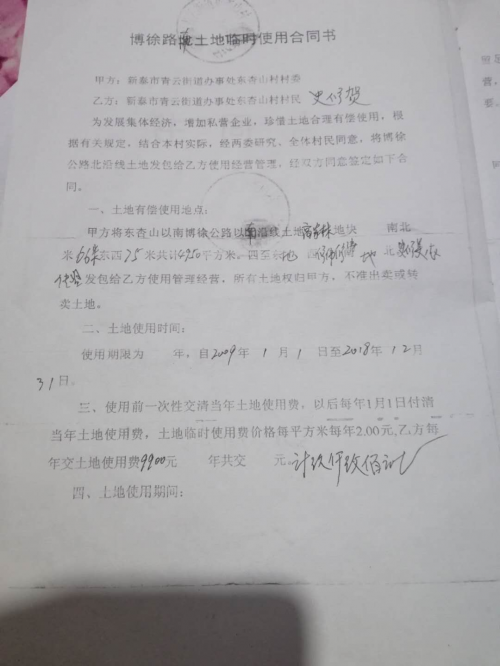 博徐路南土地临时使用合同书
甲方：新泰市青云街道办事处东杏山村村委
乙方：新泰市青云街道办事处东杏山村村民
为发展集体经济，增加私营企业，珍惜土地合理有偿使用，根
据有关规定，结合本村实际，经两委研究，全体村民同意，将博徐
公路北沿线土地发包给乙方使用经营管理，经双方同意签定如下合
同。
一、土地有偿使用地点：
甲方将东杏山以南博徐公路以南沿线土地 地块 南北
米66米东西75米共计4950平方米，四至东地 西 地 北
发包给乙方使用管理经营，所有土地权归甲方，不准出卖或转
卖土地。
二、土地使用时间：
使用期限为 年，自2009年1月1日至2018年12月
31日。
三、使用前一次性交清当年土地使用费，以后每年1月1日付清
当年土地使用费，土地临时使用费价格每平方米每年2.00元,乙方每
年交土地使用费9900元 年共交 元 计玖仟玖佰元
四、土地使用期间：